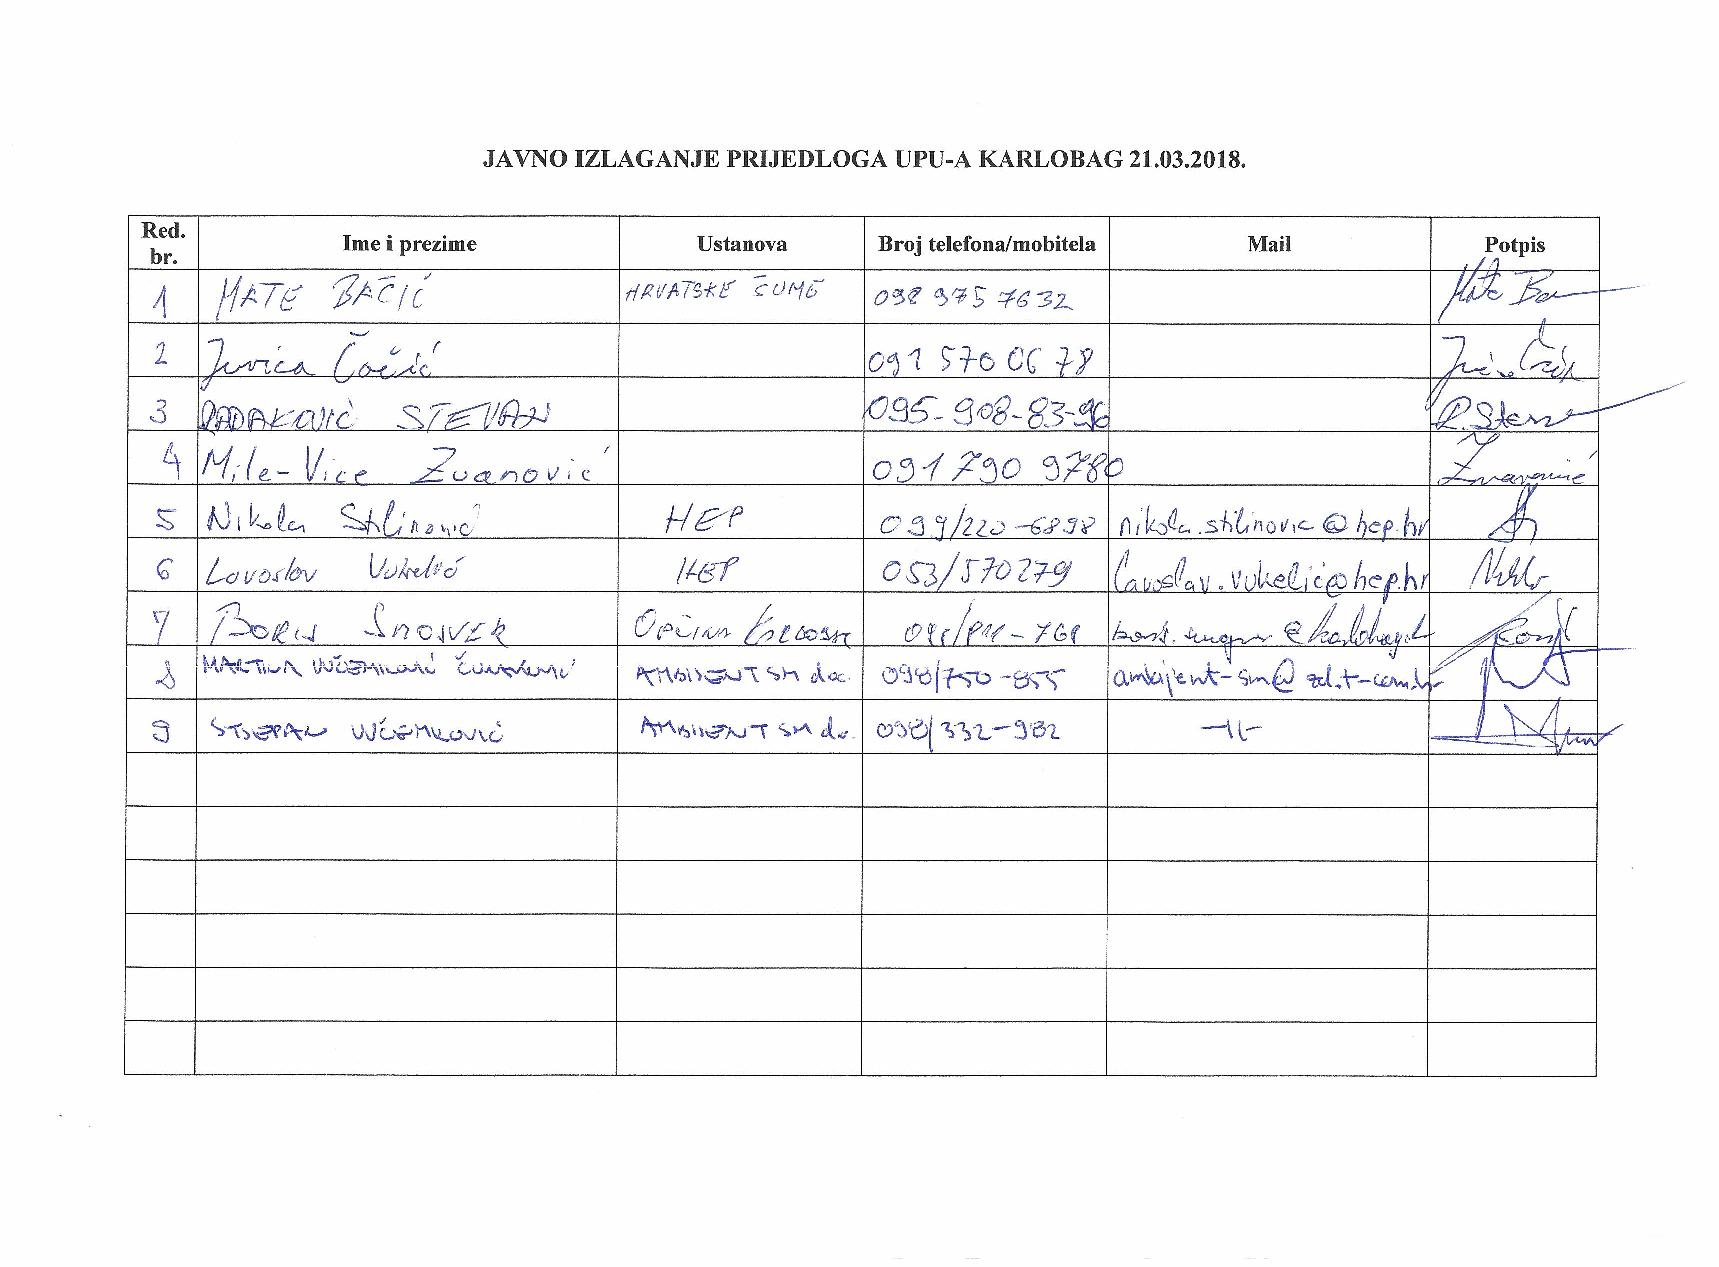 JAVNO IZLAGANJE PRIJEDLOGA UPU-A KARLOBAG 21.03.2018.
Red. br. Ime i prezime Ustanova Broj telefona/mobitela Mail Potpis
1 MATE BAČIĆ HRVATSKE ŠUME 098 975 7632 Mate
2 Jurica Čačić 091 570 06 78
3 RADAKOVIĆ STEVAN 095-908-83-96
4 Mile-Vice Zvanović 091 790 9780 Zvanović
5 Nikola Stilinović HEP 099/220-6898 nikola.stilinovic@hep.hr
6 Lavoslav Vukelić HEP 053/570279 lavoslav.vukelić@hep.hr
7 BORIS
8 MARTINA AMBIJENT SM doo. 098/750-855 ambijent-sm@zd.t-com.hr
9 STJEPAN AMBIJENT SM do. 098/332-982 -||-